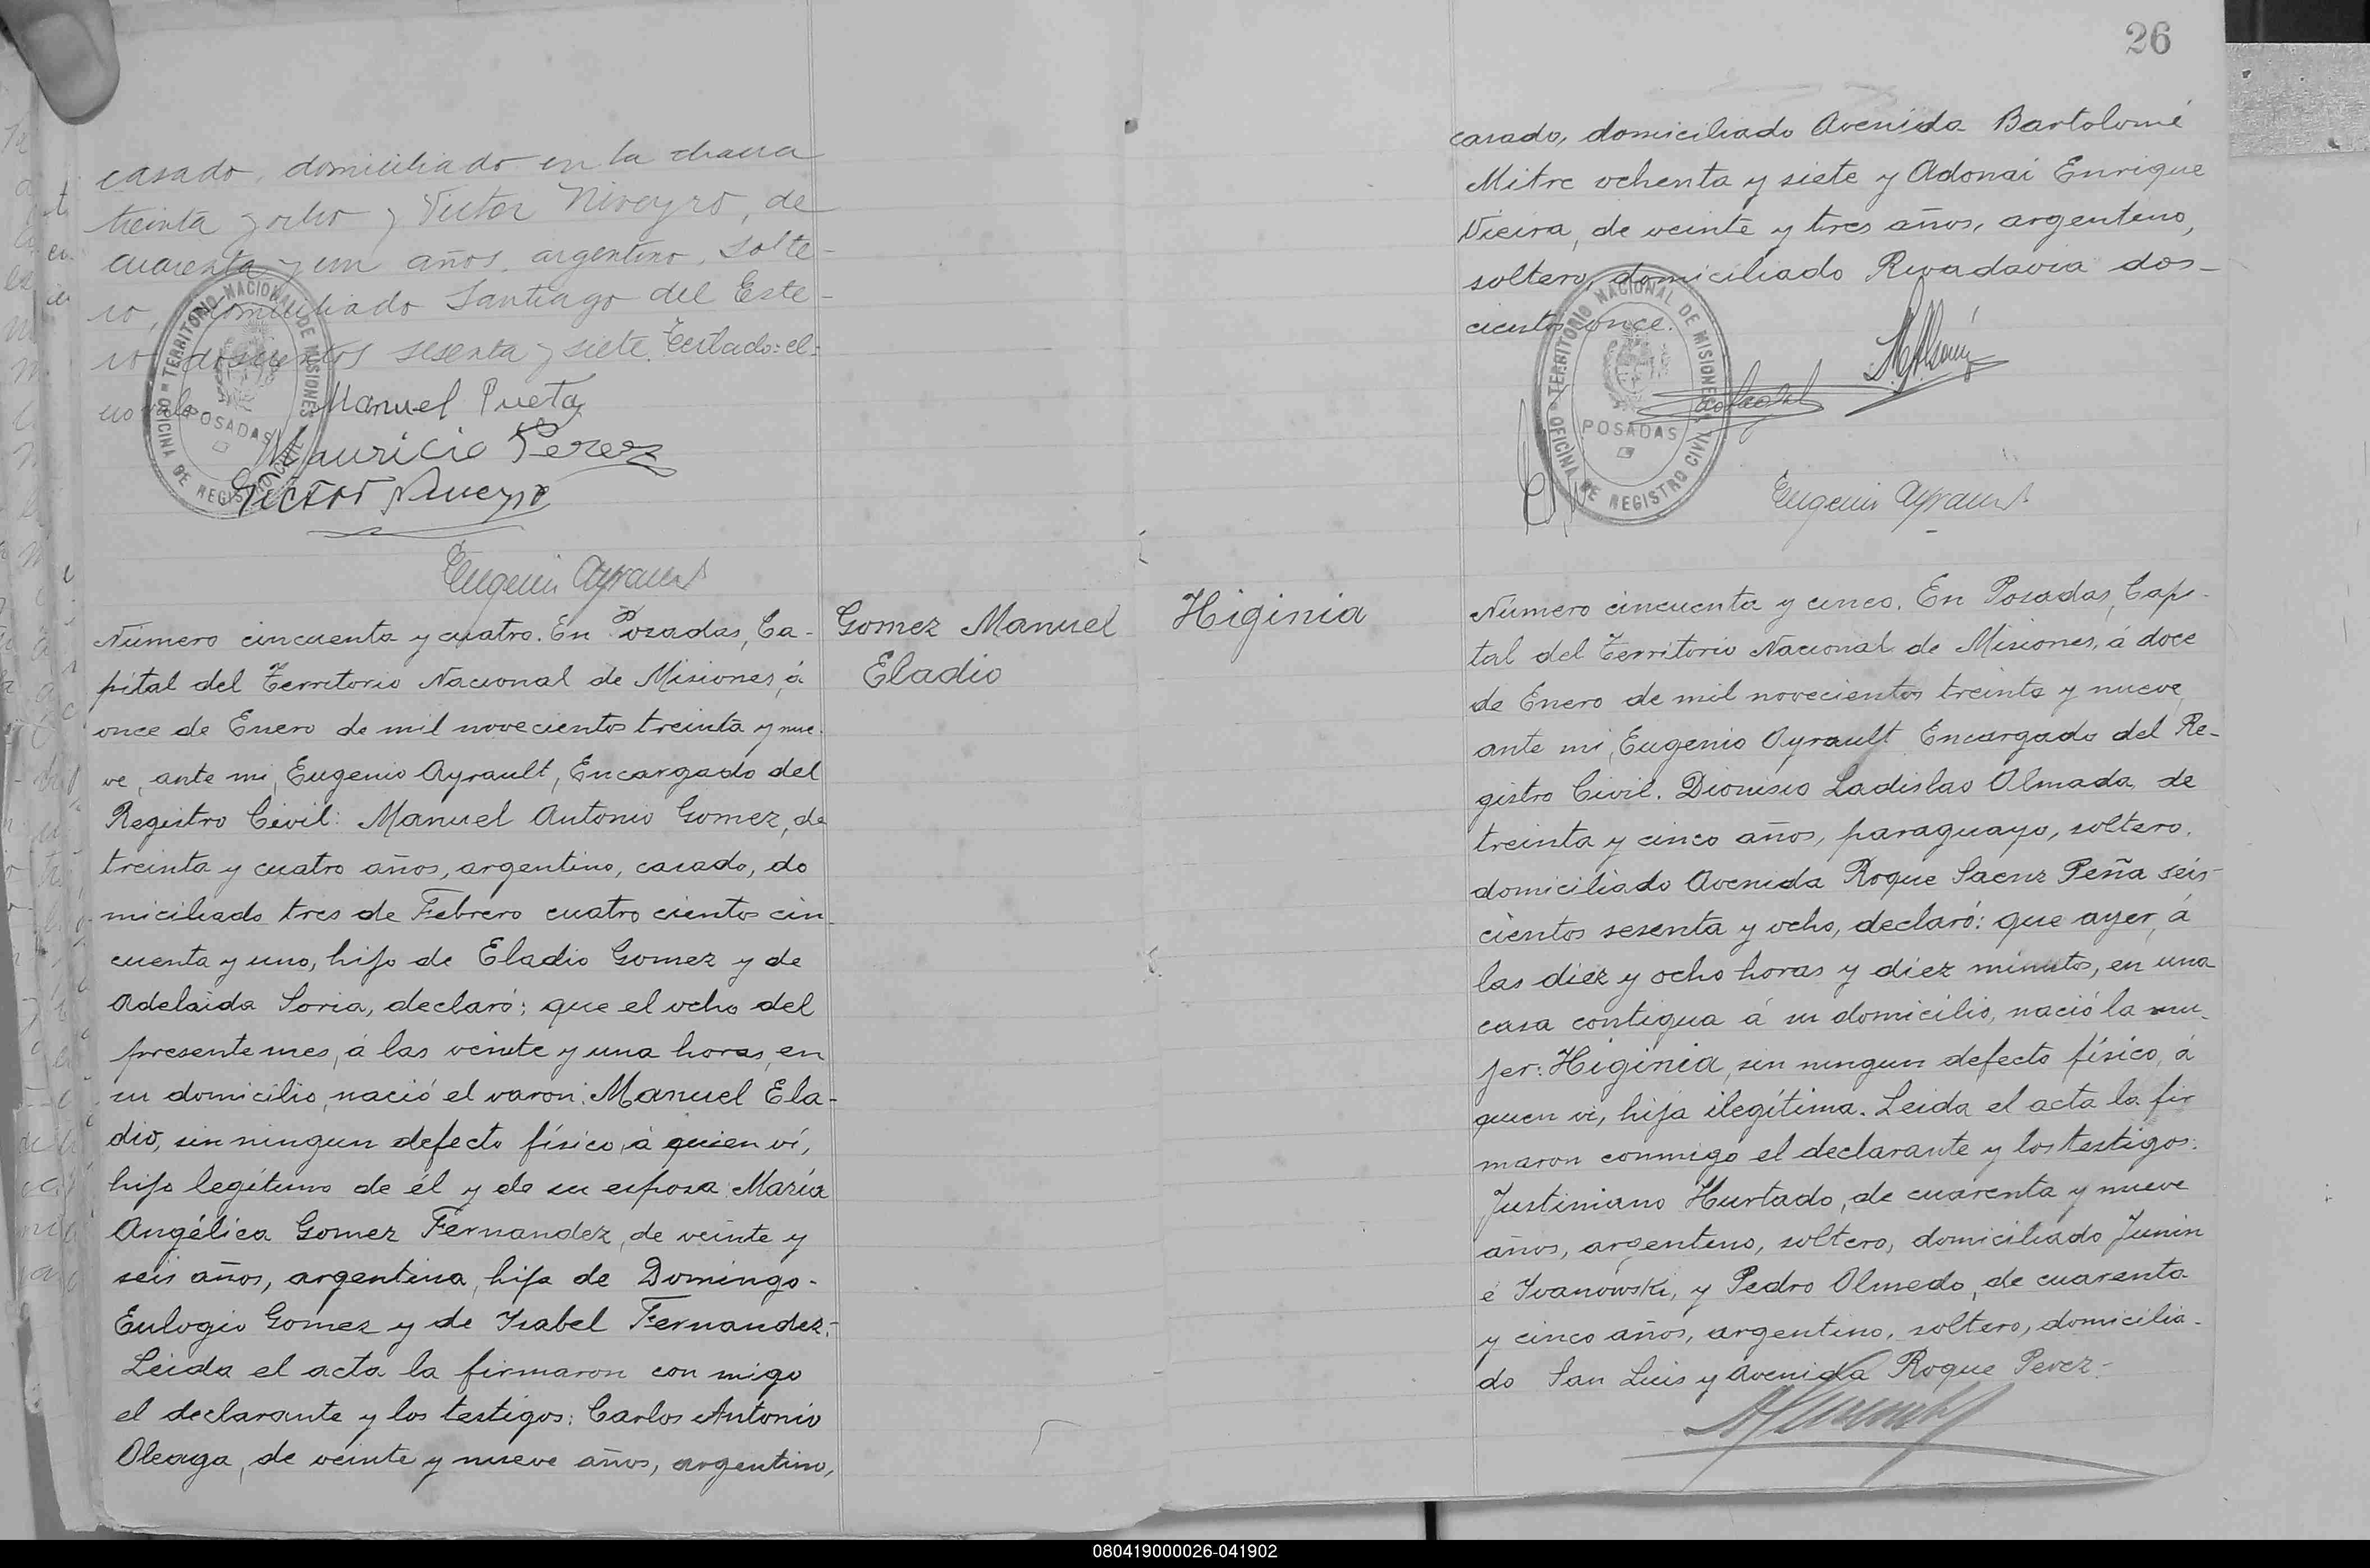 casado, domiciliado en la chacra
treinta y ocho y Victor Niveyro, de
cuarenta y un años, argentino, solte-
ro, domiciliado Santiago del Este-
ro doscientos sesenta y siete. Testado: el:
no vale
Manuel Pueta
Mauricio Perez
Victor Niveyro
TERRITORIO NACIONAL DE MISIONES
OFICINA DE REGISTRO CIVIL
POSADAS
Eugenio Ayrault
Gomez Manuel
Eladio
Número cincuenta y cuatro. En Posadas, Ca-
pital del Territorio Nacional de Misiones, á
once de Enero de mil novecientos treinta y nue-
ve, ante mi, Eugenio Ayrault, Encargado del
Registro Civil: Manuel Antonio Gomez, de
treinta y cuatro años, argentino, casado, do
miciliado tres de Febrero cuatro cientos cin-
cuenta y uno, hijo de Eladio Gomez y de
Adelaida Soria, declaró: que el ocho del
presente mes, á las veinte y una horas, en
su domicilio, nació el varon: Manuel Ela-
dio, sin ningun defecto físico, á quien ví,
hijo legítimo de él y de su esposa María
Angélica Gomez Fernandez, de veinte y
seis años, argentina, hija de Domingo
Eulogio Gomez y de Isabel Fernandez.-
Leida el acta la firmaron con migo
el declarante y los testigos: Carlos Antonio
Oleaga, de veinte y nueve años, argentino,
26
casado, domiciliado Avenida Bartolomé
Mitre ochenta y siete y Adonai Enrique
Vieira, de veinte y tres años, argentino,
soltero, domiciliado Rivadavia dos-
cientos once.
TERRITORIO NACIONAL DE MISIONES
OFICINA DE REGISTRO CIVIL
POSADAS
Eugenio Ayrault
Higinia
Número cincuenta y cinco. En Posadas, Capi-
tal del Territorio Nacional de Misiones, á doce
de Enero de mil novecientos treinta y nueve
ante mi, Eugenio Ayrault Encargado del Re-
gistro Civil. Dionisio Ladislao Olmada, de
treinta y cinco años, paraguayo, soltero,
domiciliado Avenida Roque Saenz Peña seis-
cientos sesenta y ocho, declaró: que ayer, á
las diez y ocho horas y diez minutos, en una
casa contigua á su domicilio, nació la mu-
jer: Higinia, sin ningun defecto físico, á
quien vi, hija ilegítima. Leida el acta la fir
maron conmigo el declarante y los testigos:
Justiniano Hurtado, de cuarenta y nueve
años, argentino, soltero, domiciliado Junin
é Ivanowski, y Pedro Olmedo, de cuarenta
y cinco años, argentino, soltero, domicilia-
do San Luis y Avenida Roque Perez-
080419000026-041902